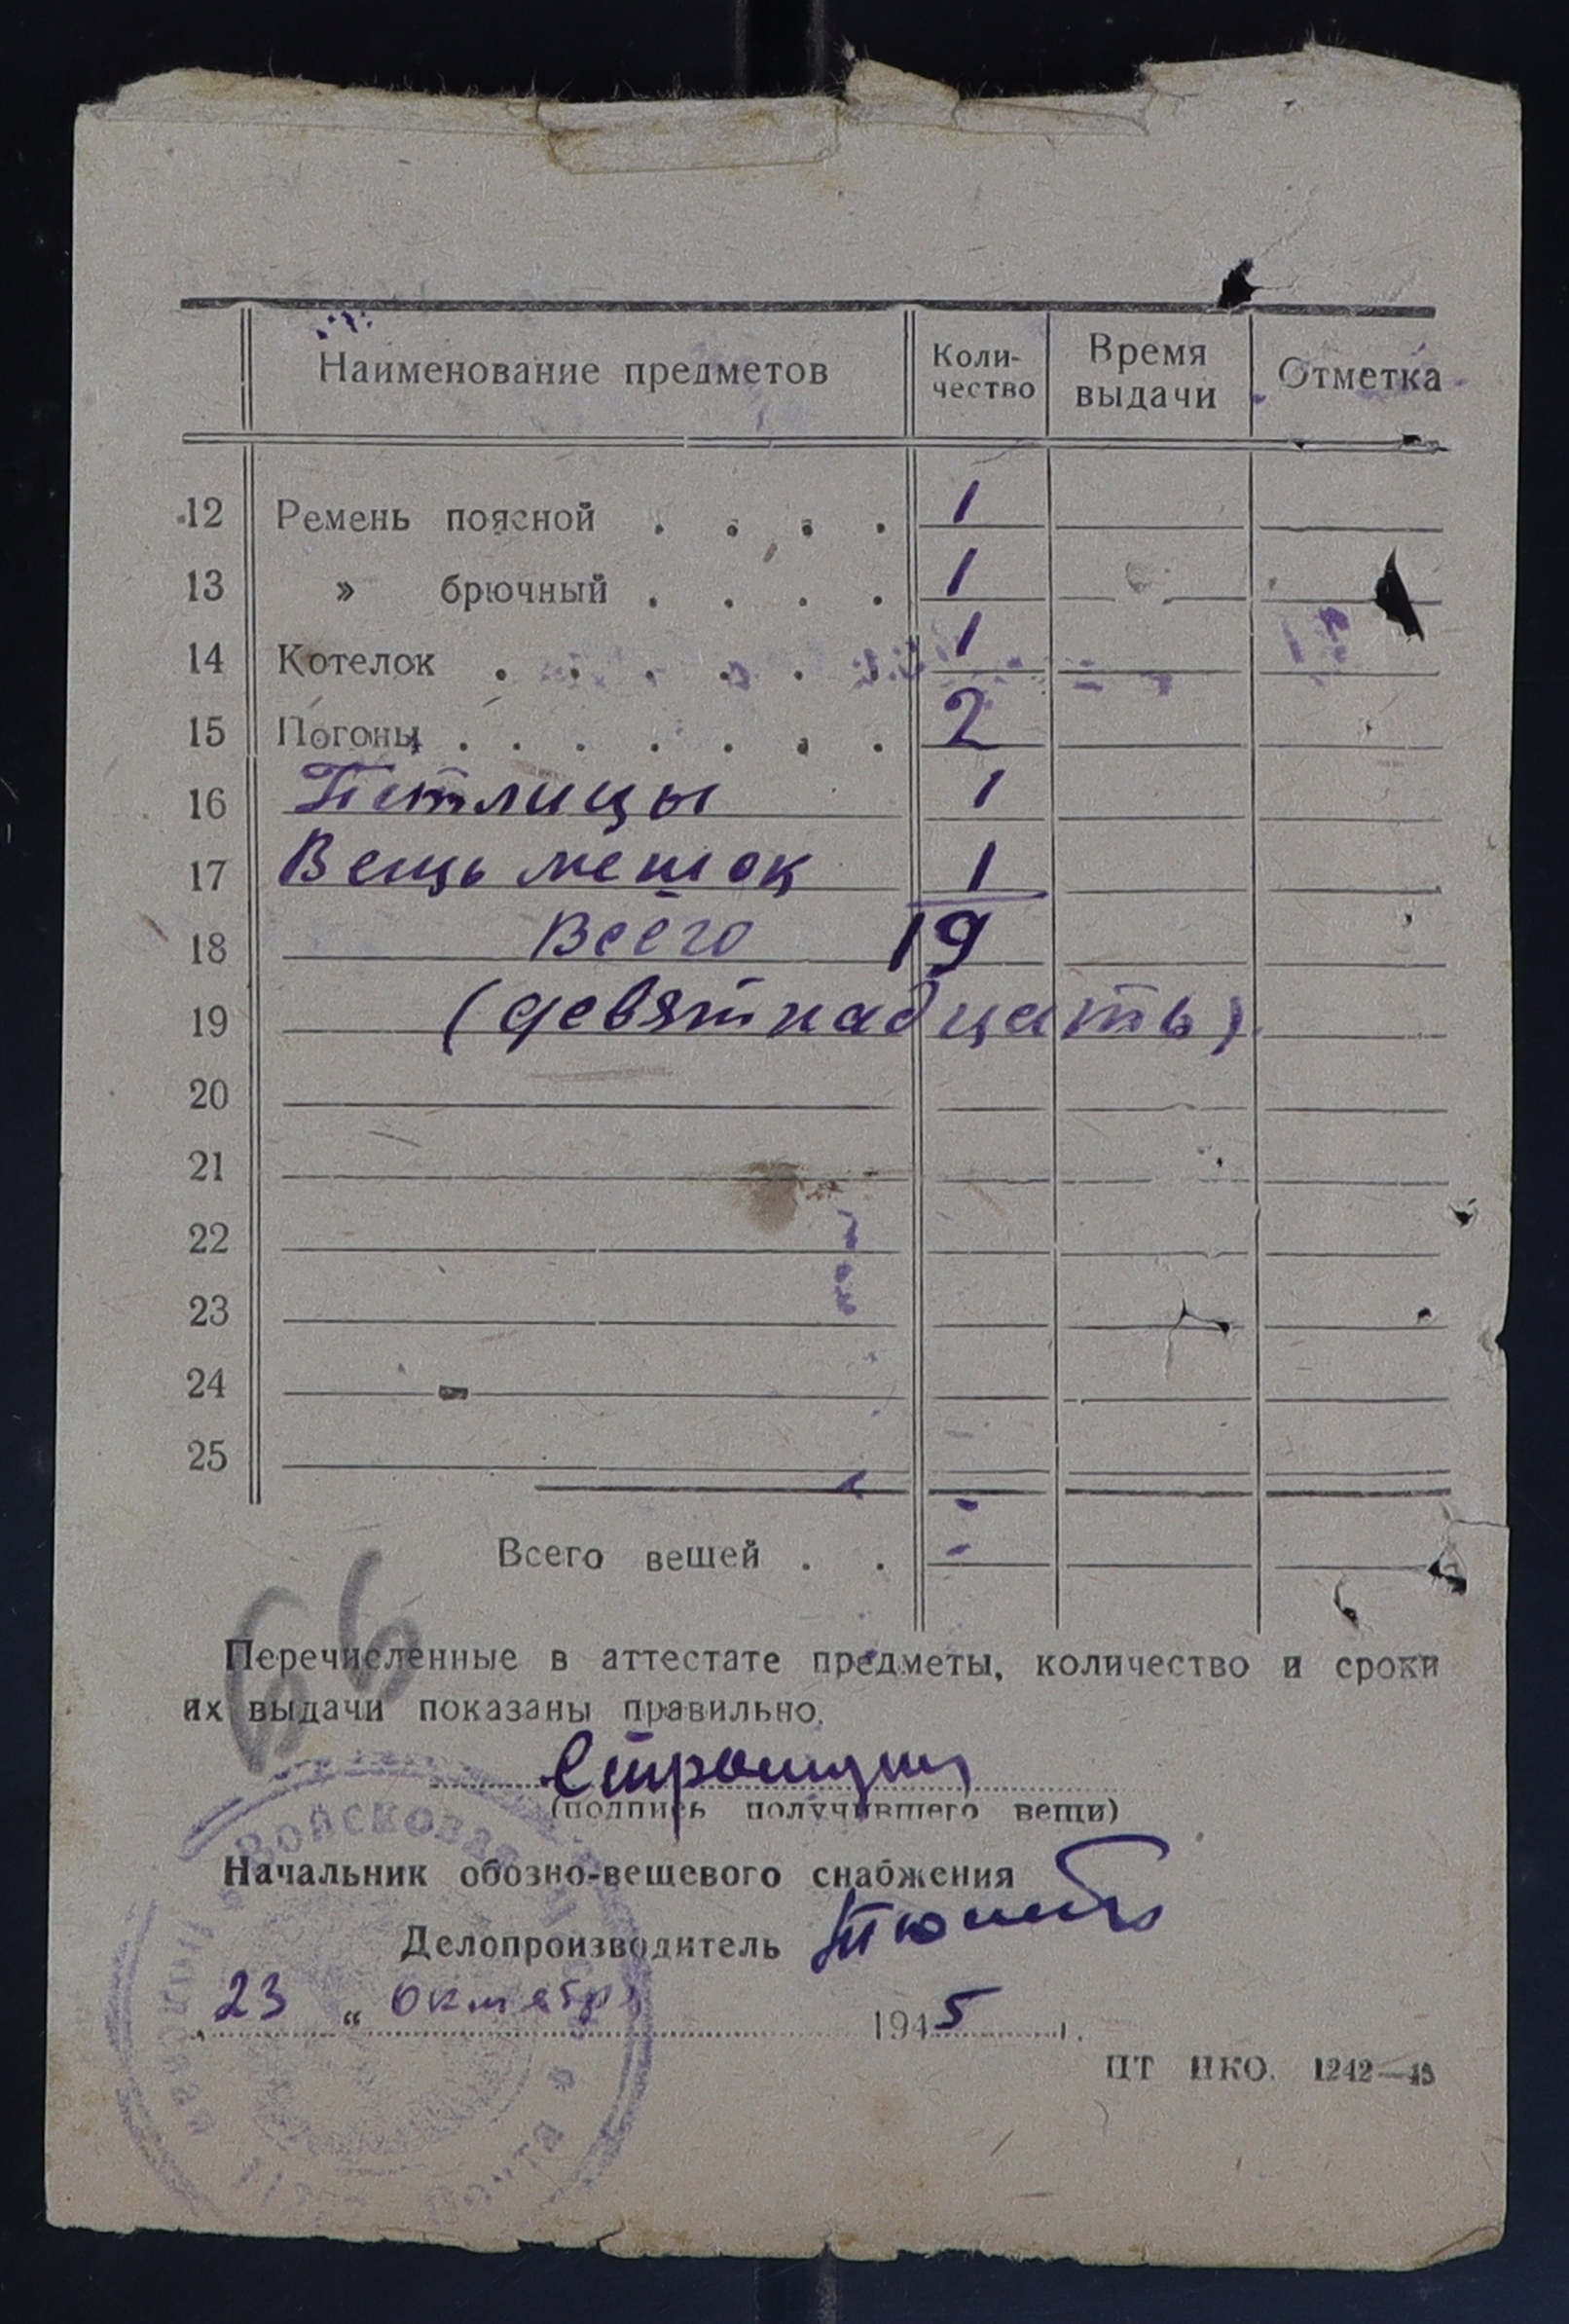 Наименование предметов Коли- Время Отметка
чество выдачи
12 Ремень поясной . . . . 1
13 » брючный . . . . 1
14 Котелок . . . . . . 1
15 Погоны . . . . . . . 2
16 Петлицы 1
17 Вещь мешок 1
18 Всего 19
19 (девятнадцать)
20
21
22
23
24
25
Всего вещей . .
66
Перечисленные в аттестате предметы, количество и сроки
их выдачи показаны правильно.
(подпись получившего вещи)
Начальник обозно-вещевого снабжения
Делопроизводитель
23 " октября 1945 г.
ЦТ НКО. 1242—43
Войсковая
почта